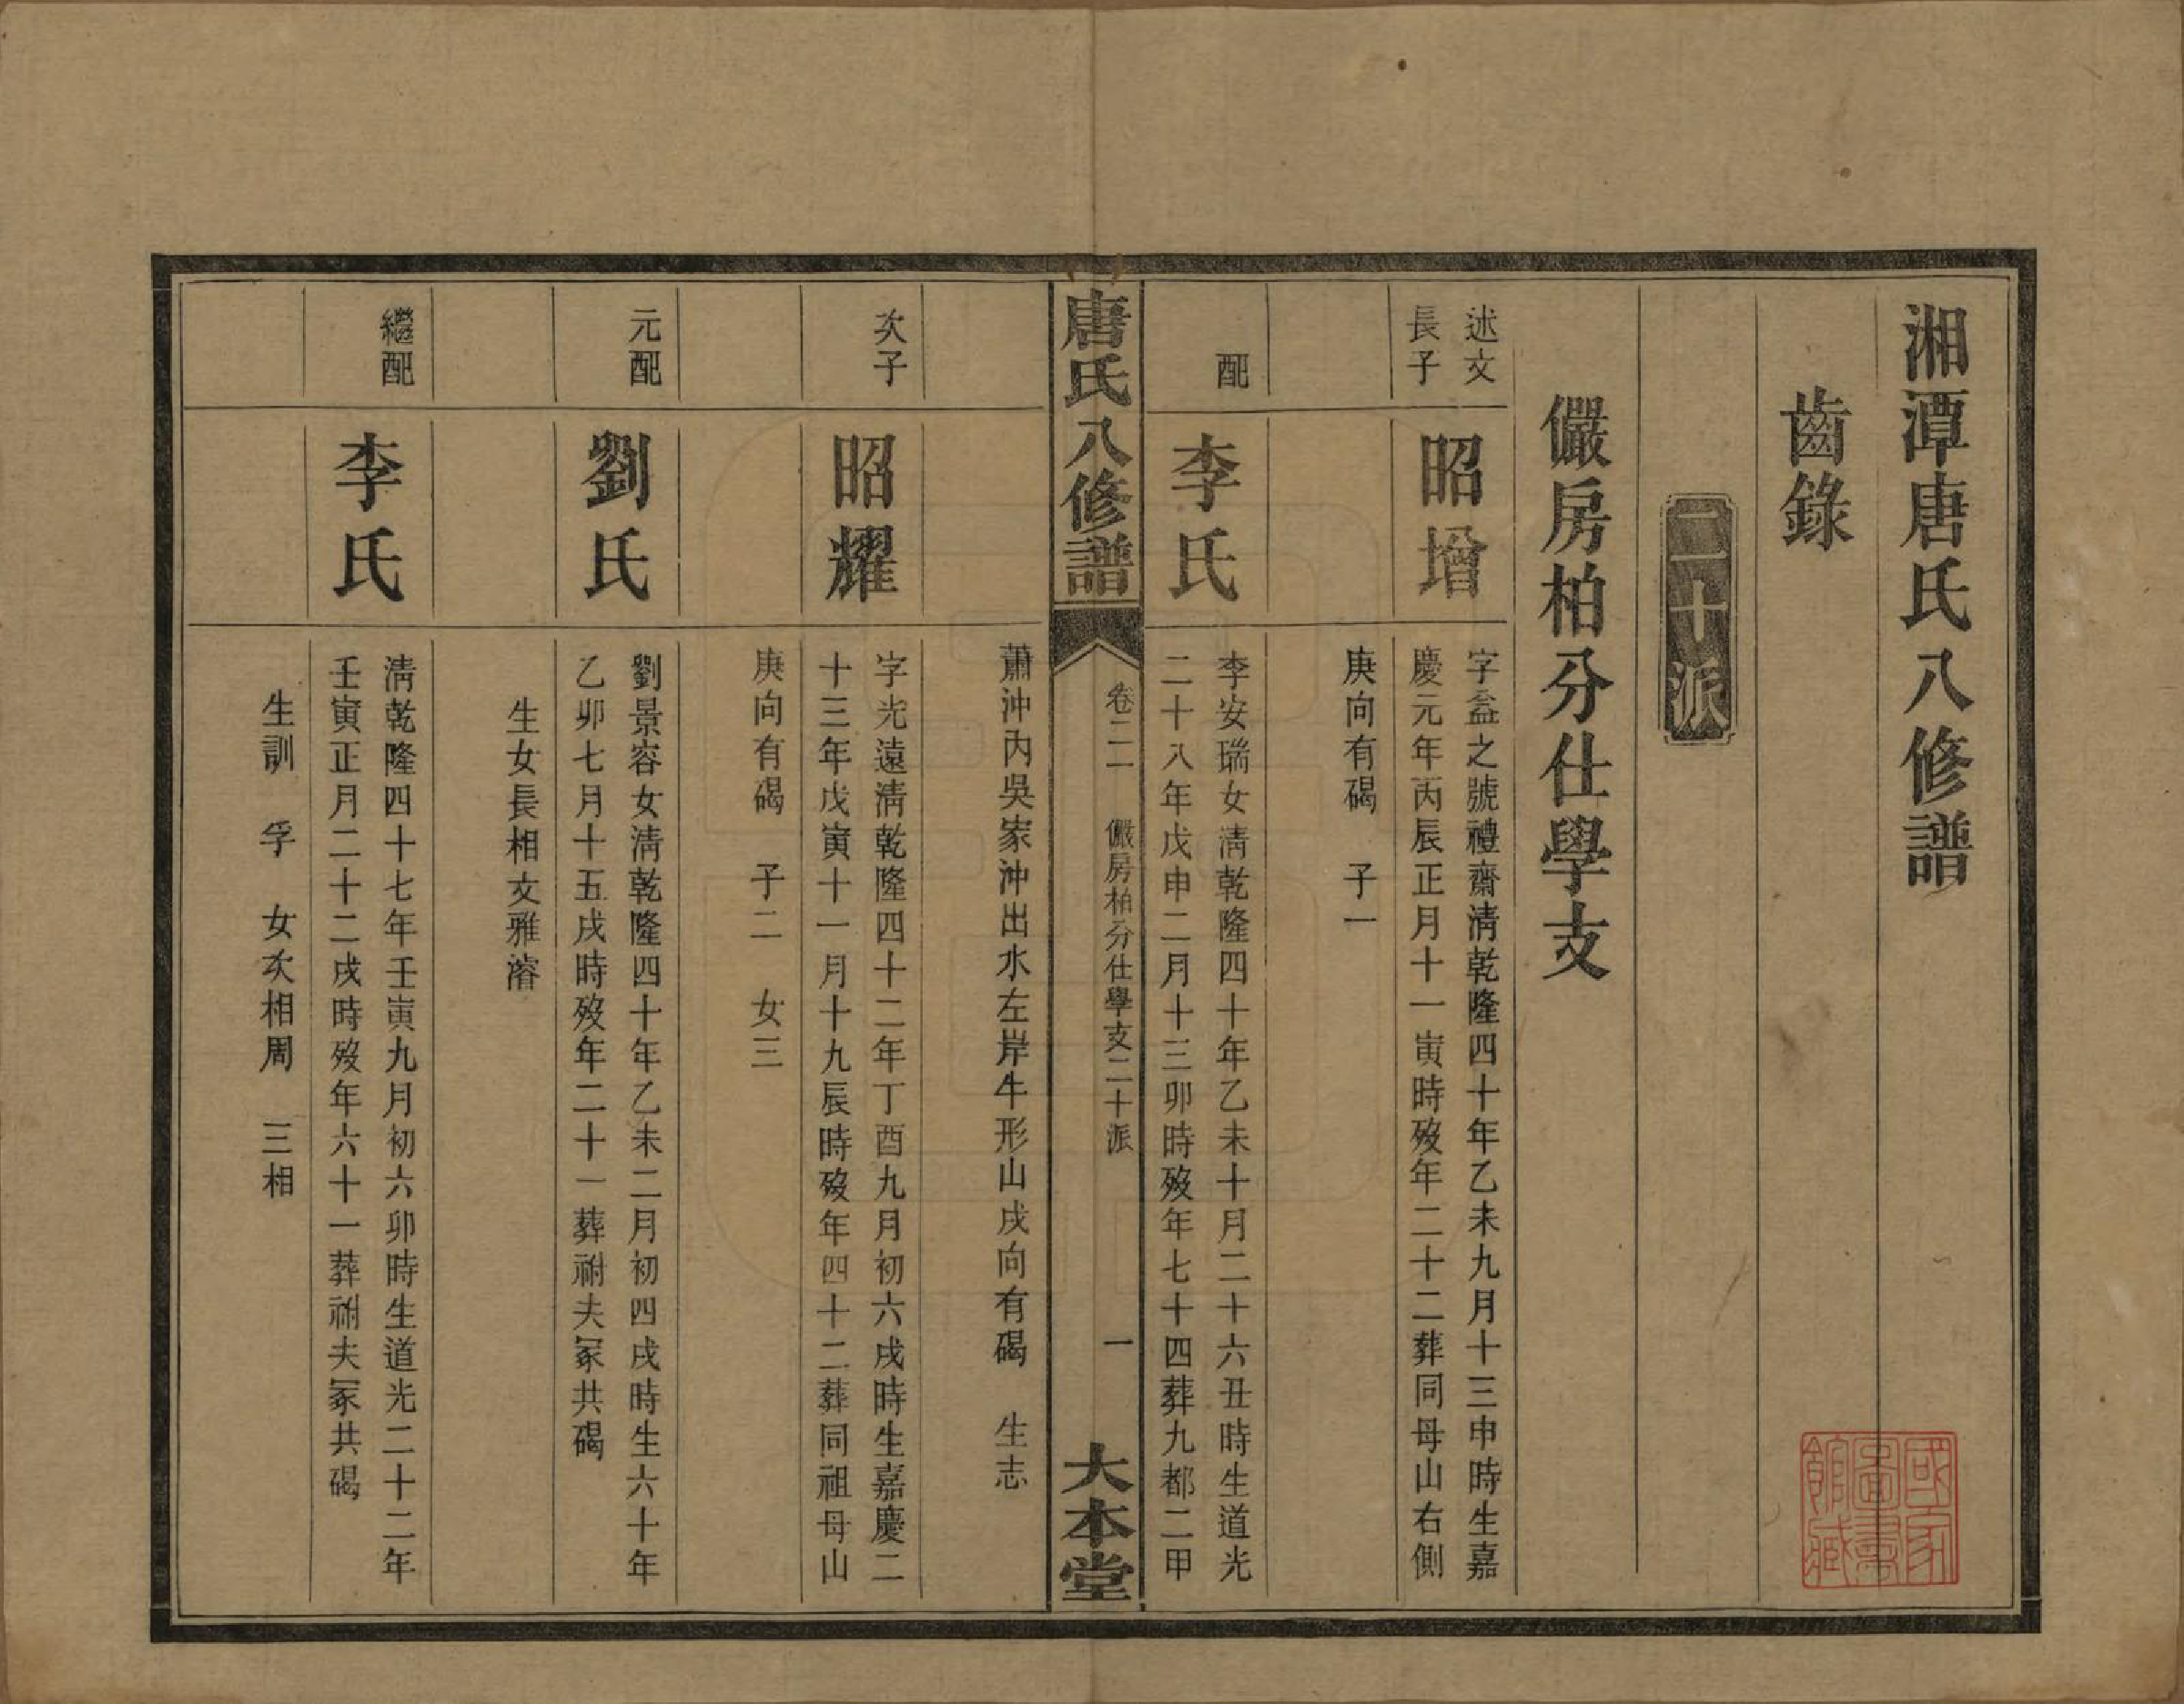 湘潭唐氏八修譜
齒錄
二十派
儼房柏分仕學支
述文
長子
昭增
字益之號禮齋清乾隆四十年乙未九月十三申時生嘉
慶元年丙辰正月十一寅時歿年二十二葬同母山右側
庚向有碣　子一
配
李氏
李安瑞女清乾隆四十年乙未十月二十六丑時生道光
二十八年戊申二月十三卯時歿年七十四葬九都二甲
唐氏八修譜
卷二二　儼房柏分仕學支二十派
一
大本堂
蕭沖內吳家沖出水左岸牛形山戌向有碣　生志
次子
昭耀
字光遠清乾隆四十二年丁酉九月初六戌時生嘉慶二
十三年戊寅十一月十九辰時歿年四十二葬同祖母山
庚向有碣　子二　女三
元配
劉氏
劉景容女清乾隆四十年乙未二月初四戌時生六十年
乙卯七月十五戌時歿年二十一葬祔夫冢共碣
生女長相文雅濬
繼配
李氏
清乾隆四十七年壬寅九月初六卯時生道光二十二年
壬寅正月二十二戌時歿年六十一葬祔夫冢共碣
生訓　孚　女次相周　三相
國家
圖書
館藏